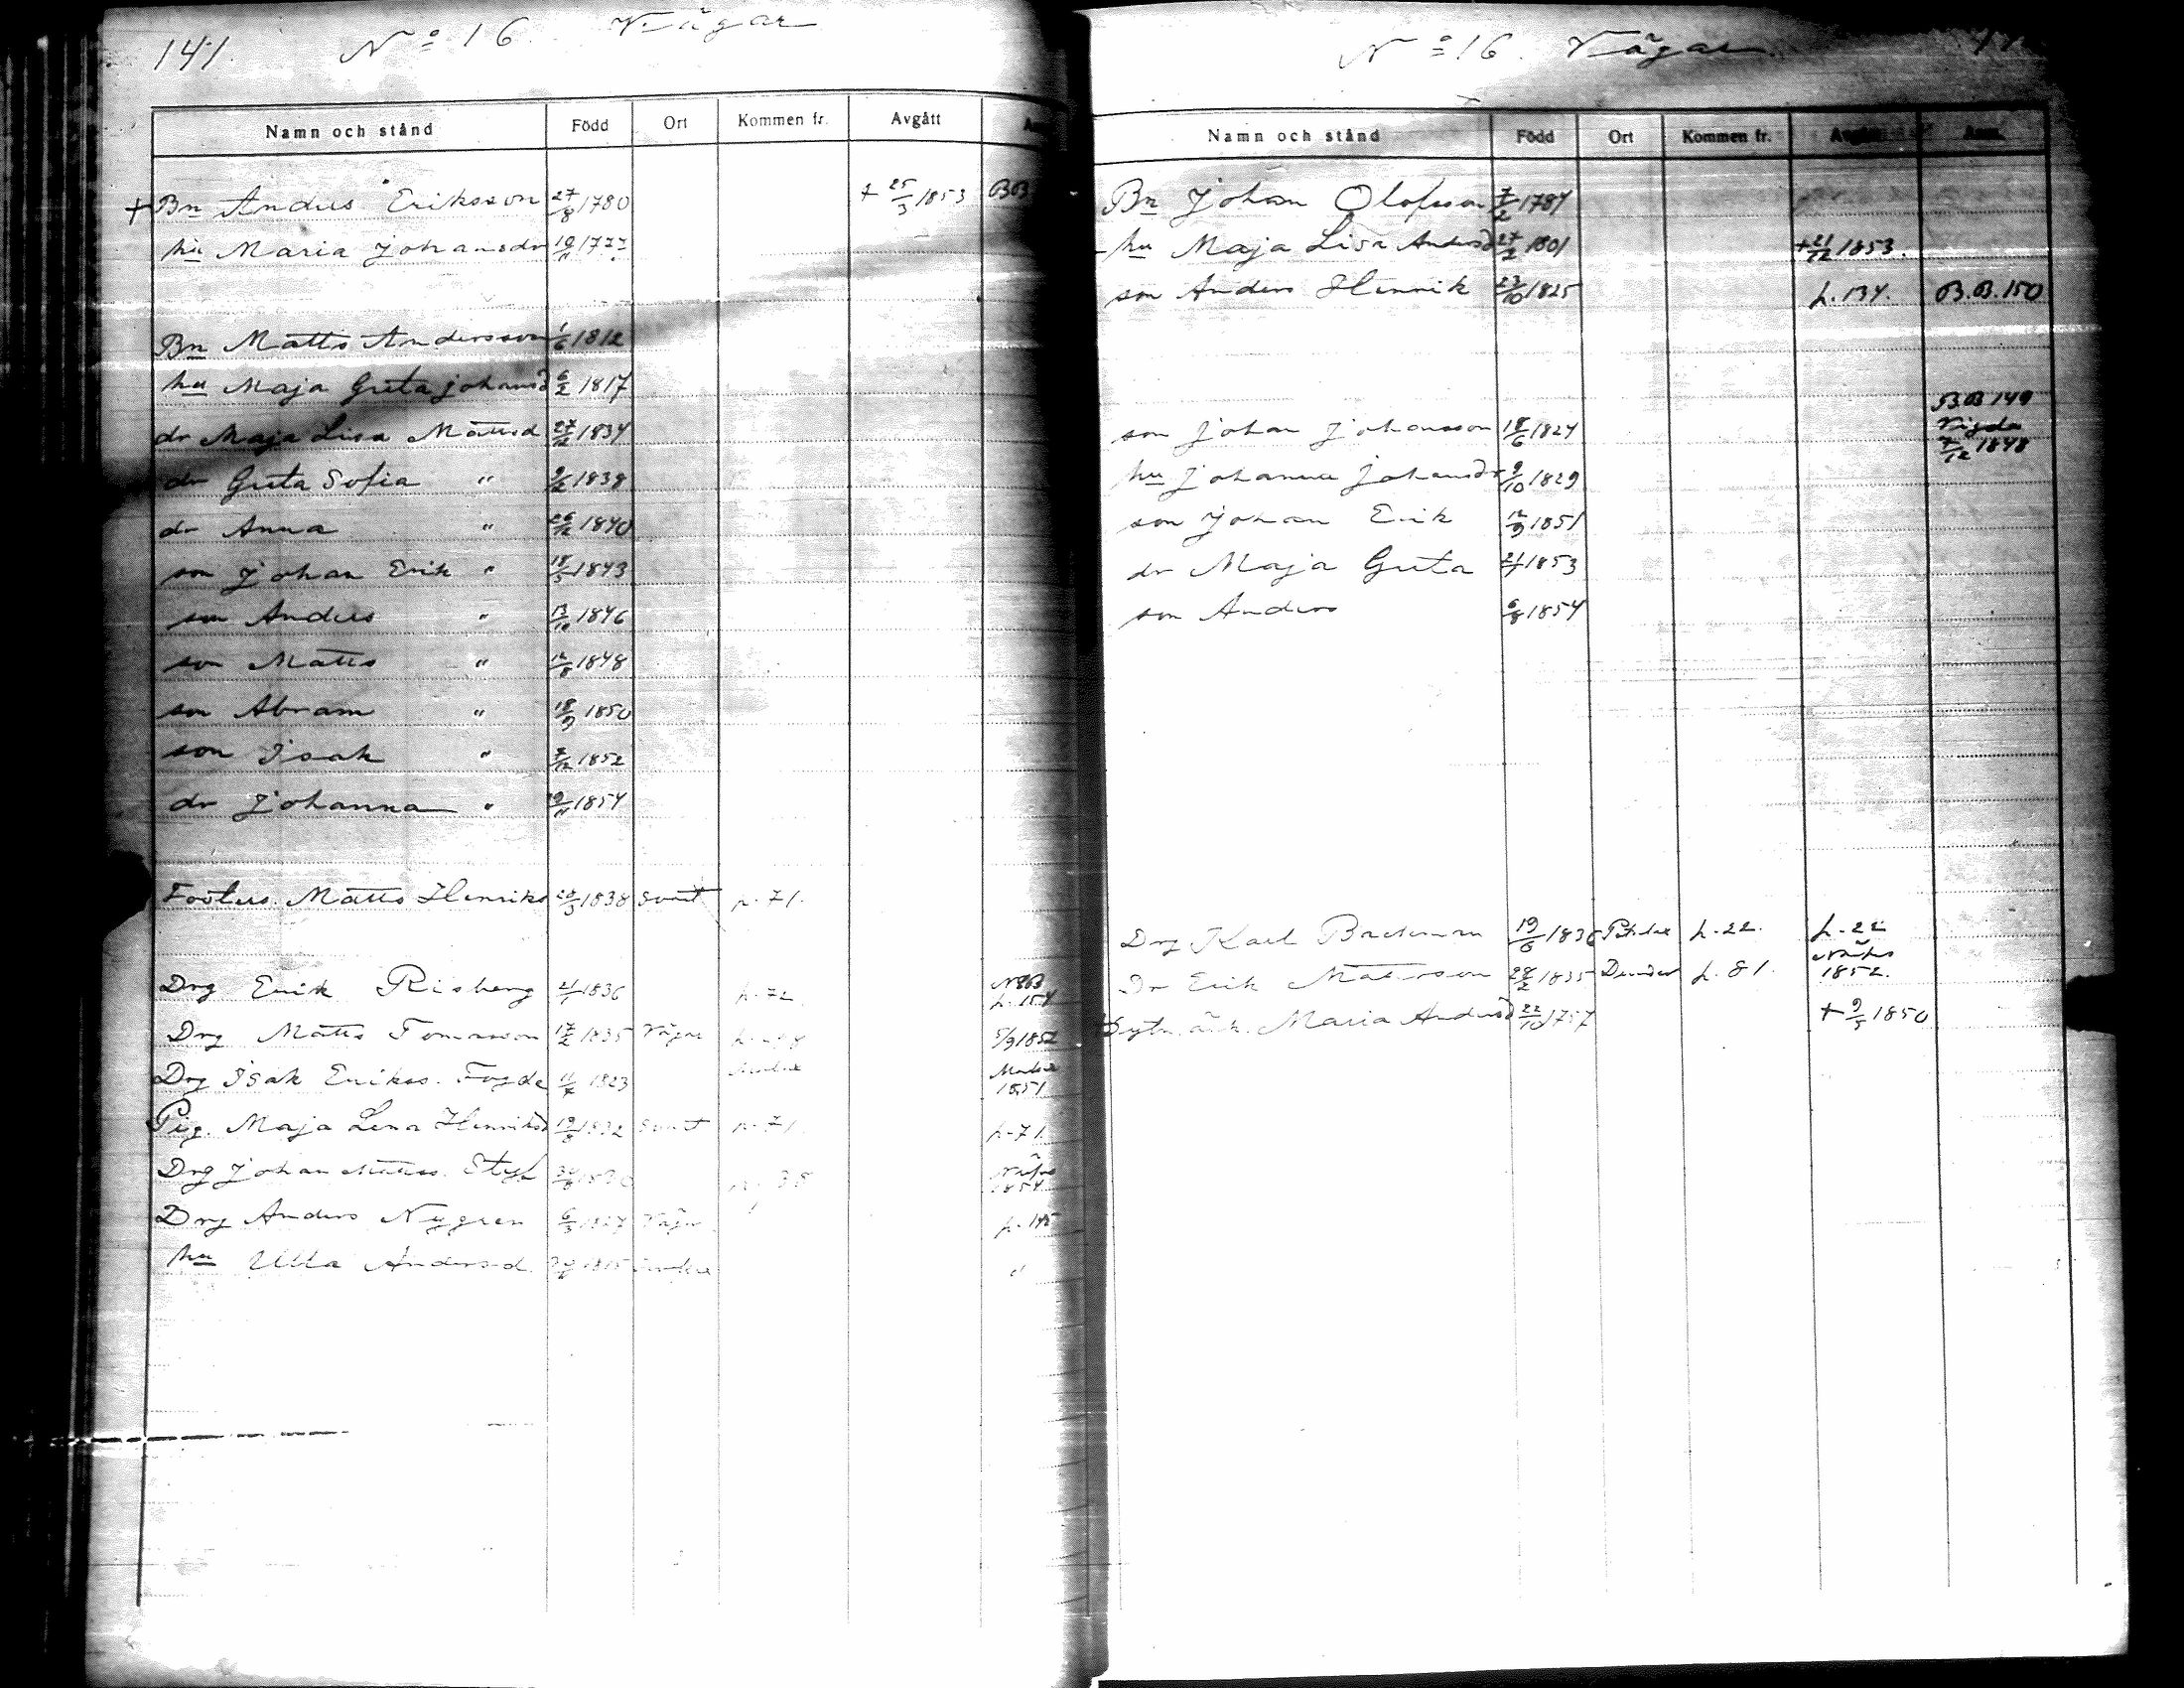 141. No 16. Vägar
Namn och stånd Född Ort Kommen fr. Avgått
+ Bn Anders Eriksson 27/8 1780 + 25/3 1853 BB.
hu Maria Johansdr 19/11 1777
Bn Matts Andersson 1/6 1812
hu Maja Greta Johansd 6/2 1817
dr Maja Lisa Mattsd 27/12 1834
dr Greta Sofia "
dr Anna " 26/12 1840
son Johan Erik " 18/5 1843
son Anders " 13/10 1846
son Matts " 12/8 1848
son Abram " 18/9 1850
son Isak " 1852
dr Johanna " 1854
Fosters. Matts Henriks 1838 p. 71.
Drg Erik Risberg 1836 p. 72 p. 154
Drg Matts Tomasson 17/2 1835 Vägar 5/9 1852
Drg Isak Erikss. Fogde 11/7 1823 1851
Pig. Maja Lena Henriksd 1832 p. 71. p. 71.
Drg Johan 1854
Drg Anders Nygren Vägar p. 145
hu Ulla Andersd 1815 "
No 16. Vägar
Namn och stånd Född Ort Kommen fr. Avgått Anm.
Bn Johan Olofsson 7/2 1787
hu Maja Lisa Andersd 27/2 1801 + 21/12 1853.
son Anders Henrik 23/10 1825 p. 134. B.B. 150
BB 149
son Johan Johansson 18/6 1824 Vigda 7/12 1848
hu Johanna Johansdr 9/10 1829
son Johan Erik 12/9 1851
dr Maja Greta 1853
son Anders 6/8 1854
Drg Karl Backman 19/6 1836 p. 22. p. 22
Dr Erik Matsson 28/2 1835 p. 81. 1852.
Maria Andersd 22/10 + 9/5 1850